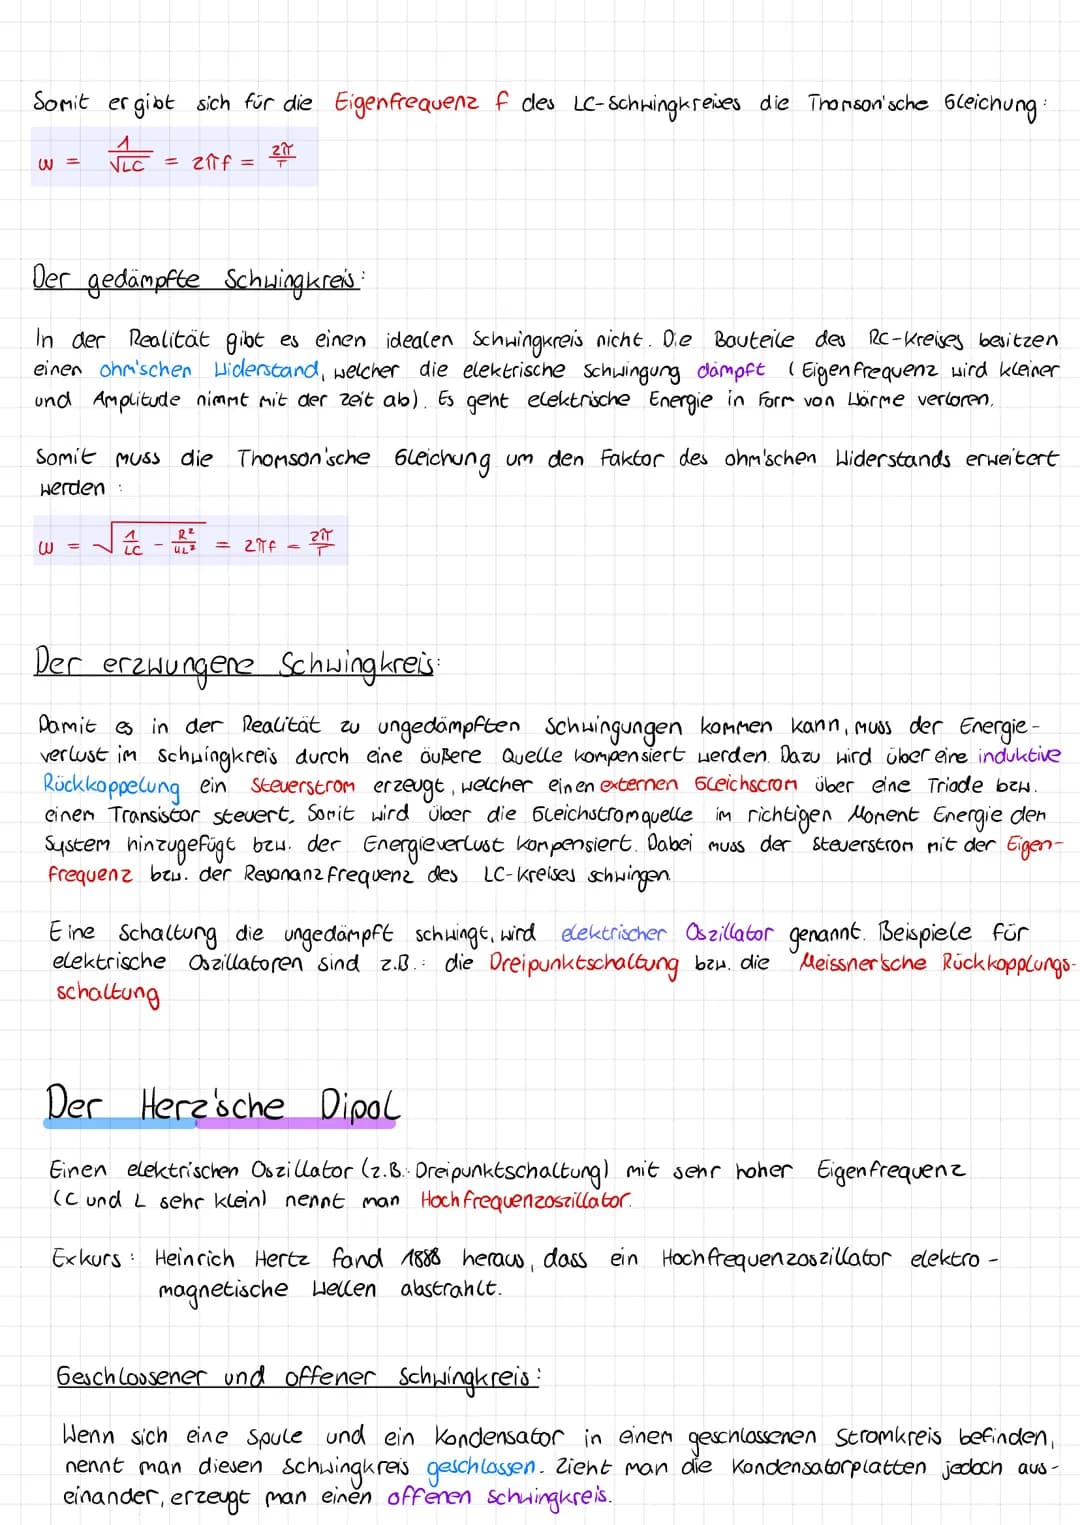 Somit ergibt sich für die Eigenfrequenz f des LC-Schwingkreises die Thomson'sche Gleichung:
ω = 1/√LC = 2πf = 2π/T
Der gedämpfte Schwingkreis:
In der Realität gibt es einen idealen Schwingkreis nicht. Die Bauteile des RC-Kreises besitzen
einen ohm'schen Widerstand, welcher die elektrische Schwingung dämpft (Eigenfrequenz wird kleiner
und Amplitude nimmt mit der Zeit ab). Es geht elektrische Energie in Form von Wärme verloren.
Somit muss die Thomson'sche Gleichung um den Faktor des ohm'schen Widerstands erweitert
werden :
ω = √(1/LC - R²/4L²) = 2πf = 2π/T
Der erzwungene Schwingkreis:
Damit es in der Realität zu ungedämpften Schwingungen kommen kann, muss der Energie-
verlust im Schwingkreis durch eine äußere Quelle kompensiert werden. Dazu wird über eine induktive
Rückkoppelung ein Steuerstrom erzeugt, welcher einen externen Gleichstrom über eine Triode bzw.
einem Transistor steuert. Somit wird über die Gleichstromquelle im richtigen Moment Energie dem
System hinzugefügt bzw. der Energieverlust kompensiert. Dabei muss der Steuerstrom mit der Eigen-
frequenz bzw. der Resonanzfrequenz des LC-Kreises schwingen.
Eine Schaltung die ungedämpft schwingt, wird elektrischer Oszillator genannt. Beispiele für
elektrische Oszillatoren sind z.B.: die Dreipunktschaltung bzw. die Meissner'sche Rückkopplungs-
schaltung
Der Herz'sche Dipol
Einen elektrischen Oszillator (z.B.: Dreipunktschaltung) mit sehr hoher Eigenfrequenz
(C und L sehr klein) nennt man Hochfrequenzoszillator.
Exkurs : Heinrich Hertz fand 1888 heraus, dass ein Hochfrequenzoszillator elektro-
magnetische Wellen abstrahlt.
Geschlossener und offener Schwingkreis:
Wenn sich eine Spule und ein Kondensator in einem geschlossenen Stromkreis befinden,
nennt man diesen Schwingkreis geschlossen. Zieht man die Kondensatorplatten jedoch aus-
einander, erzeugt man einen offenen Schwingkreis.